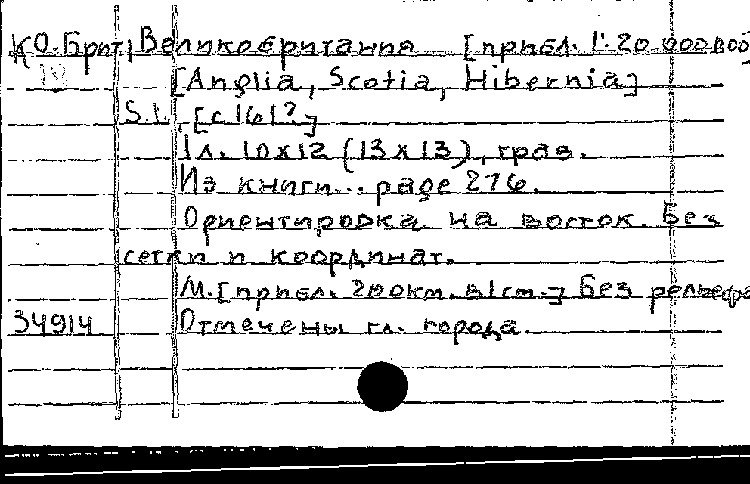 КО.Брит. Великобритания [прибл. 1:20 000000]
[Anglia, Scotia, Hibernia]
S.l., [c161?]
1л. 10х12 (13х13), грав.
Из книги... page 276.
Ориентировка на восток. Без
сетки и координат.
М.[прибл. 200км. в1см.] Без рельефа
34914 Отмечены гл. города.